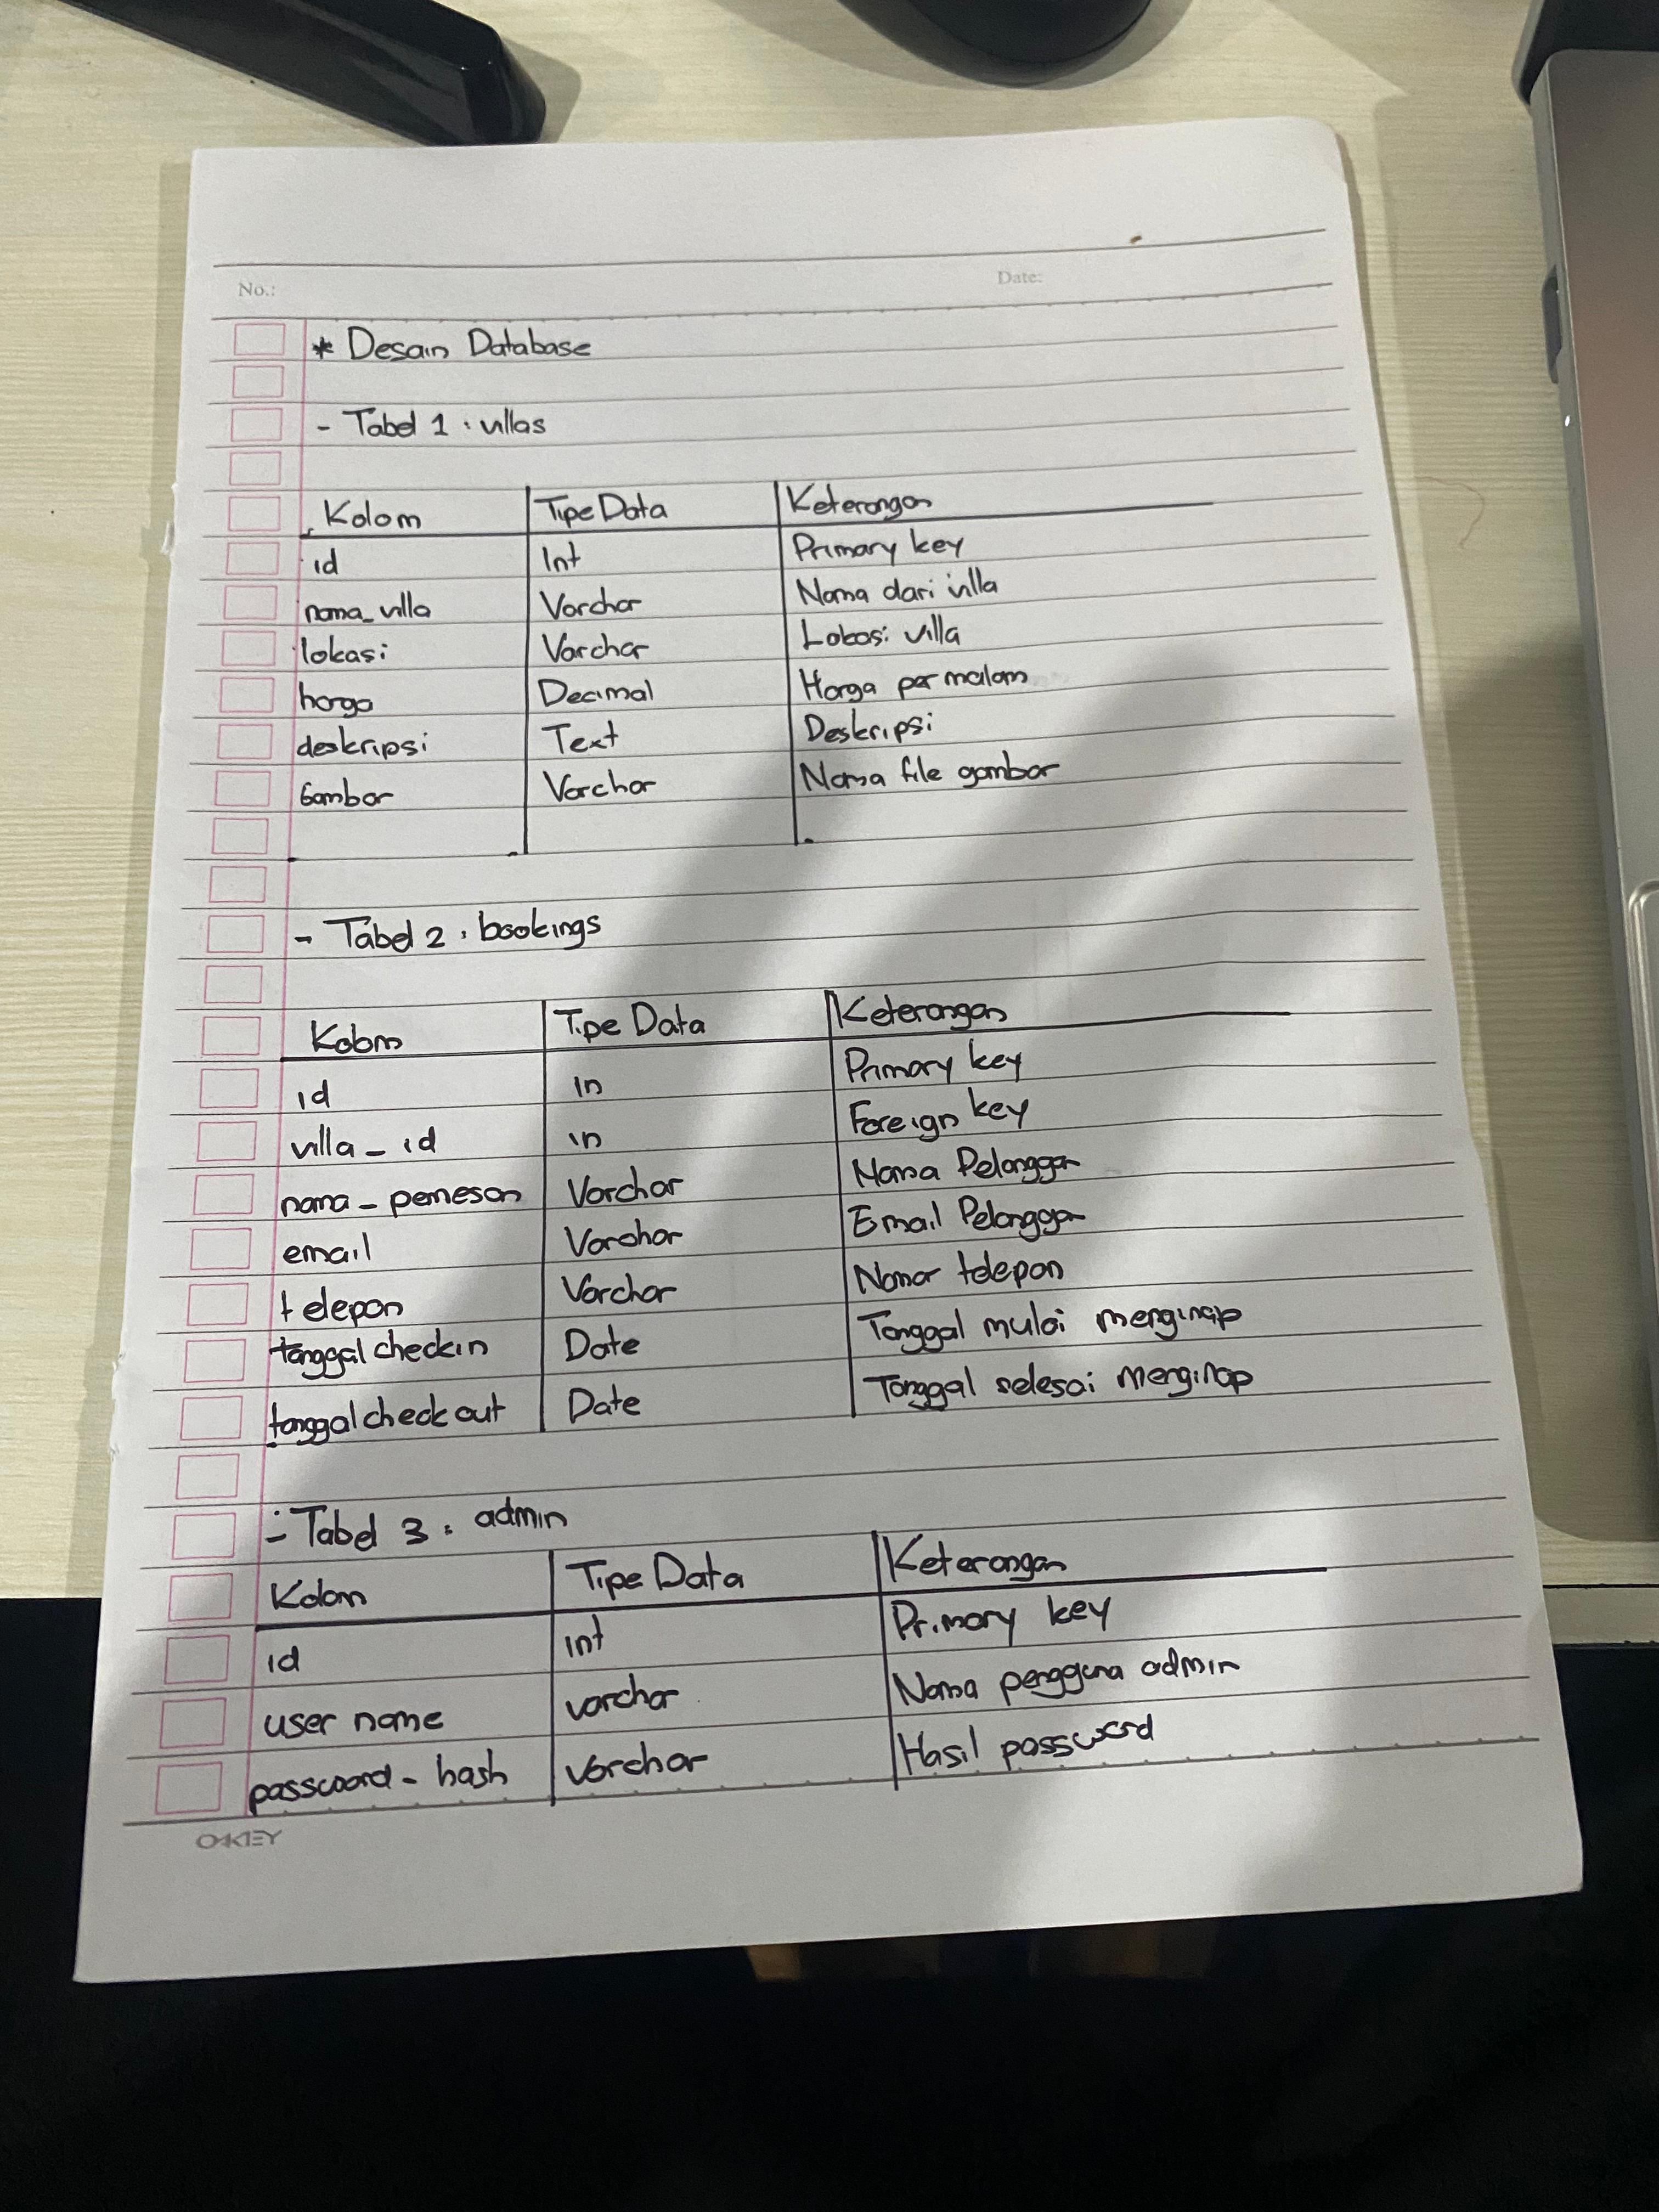 No.: Date:
* Desain Database
- Tabel 1 : villas
Kolom Tipe Data Keterangan
id Int Primary key
nama_villa Varchar Nama dari villa
lokasi Varchar Lokasi villa
harga Decimal Harga per malam
deskripsi Text Deskripsi
Gambar Varchar Nama file gambar
- Tabel 2 : bookings
Kolom Tipe Data Keterangan
id in Primary key
villa_id in Foreign key
nama_pemesan Varchar Nama Pelanggan
email Varchar Email Pelanggan
telepon Varchar Nomor telepon
tanggal checkin Date Tanggal mulai menginap
tanggal check out Date Tanggal selesai menginap
- Tabel 3 : admin
Kolom Tipe Data Keterangan
id int Primary key
user name varchar Nama pengguna admin
password_hash varchar Hasil password
OKEY